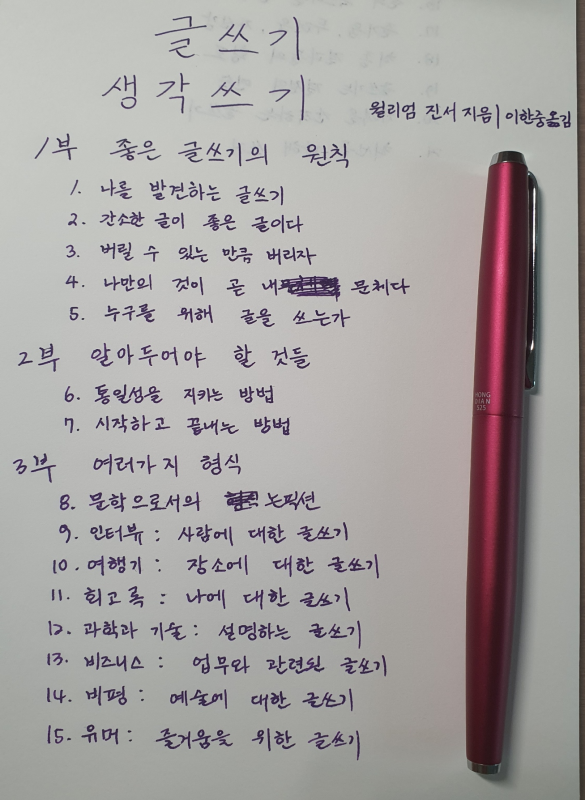 글쓰기
생각쓰기
윌리엄 진서 지음 | 이한중 옮김
1부 좋은 글쓰기의 원칙
1. 나를 발견하는 글쓰기
2. 간소한 글이 좋은 글이다
3. 버릴 수 있는 만큼 버리자
4. 나만의 것이 곧 내 문체다
5. 누구를 위해 글을 쓰는가
2부 알아두어야 할 것들
6. 통일성을 지키는 방법
7. 시작하고 끝내는 방법
3부 여러가지 형식
8. 문학으로서의 논픽션
9. 인터뷰 : 사람에 대한 글쓰기
10. 여행기 : 장소에 대한 글쓰기
11. 회고록 : 나에 대한 글쓰기
12. 과학과 기술 : 설명하는 글쓰기
13. 비즈니스 : 업무와 관련된 글쓰기
14. 비평 : 예술에 대한 글쓰기
15. 유머 : 즐거움을 위한 글쓰기
HONG
DIAN
525